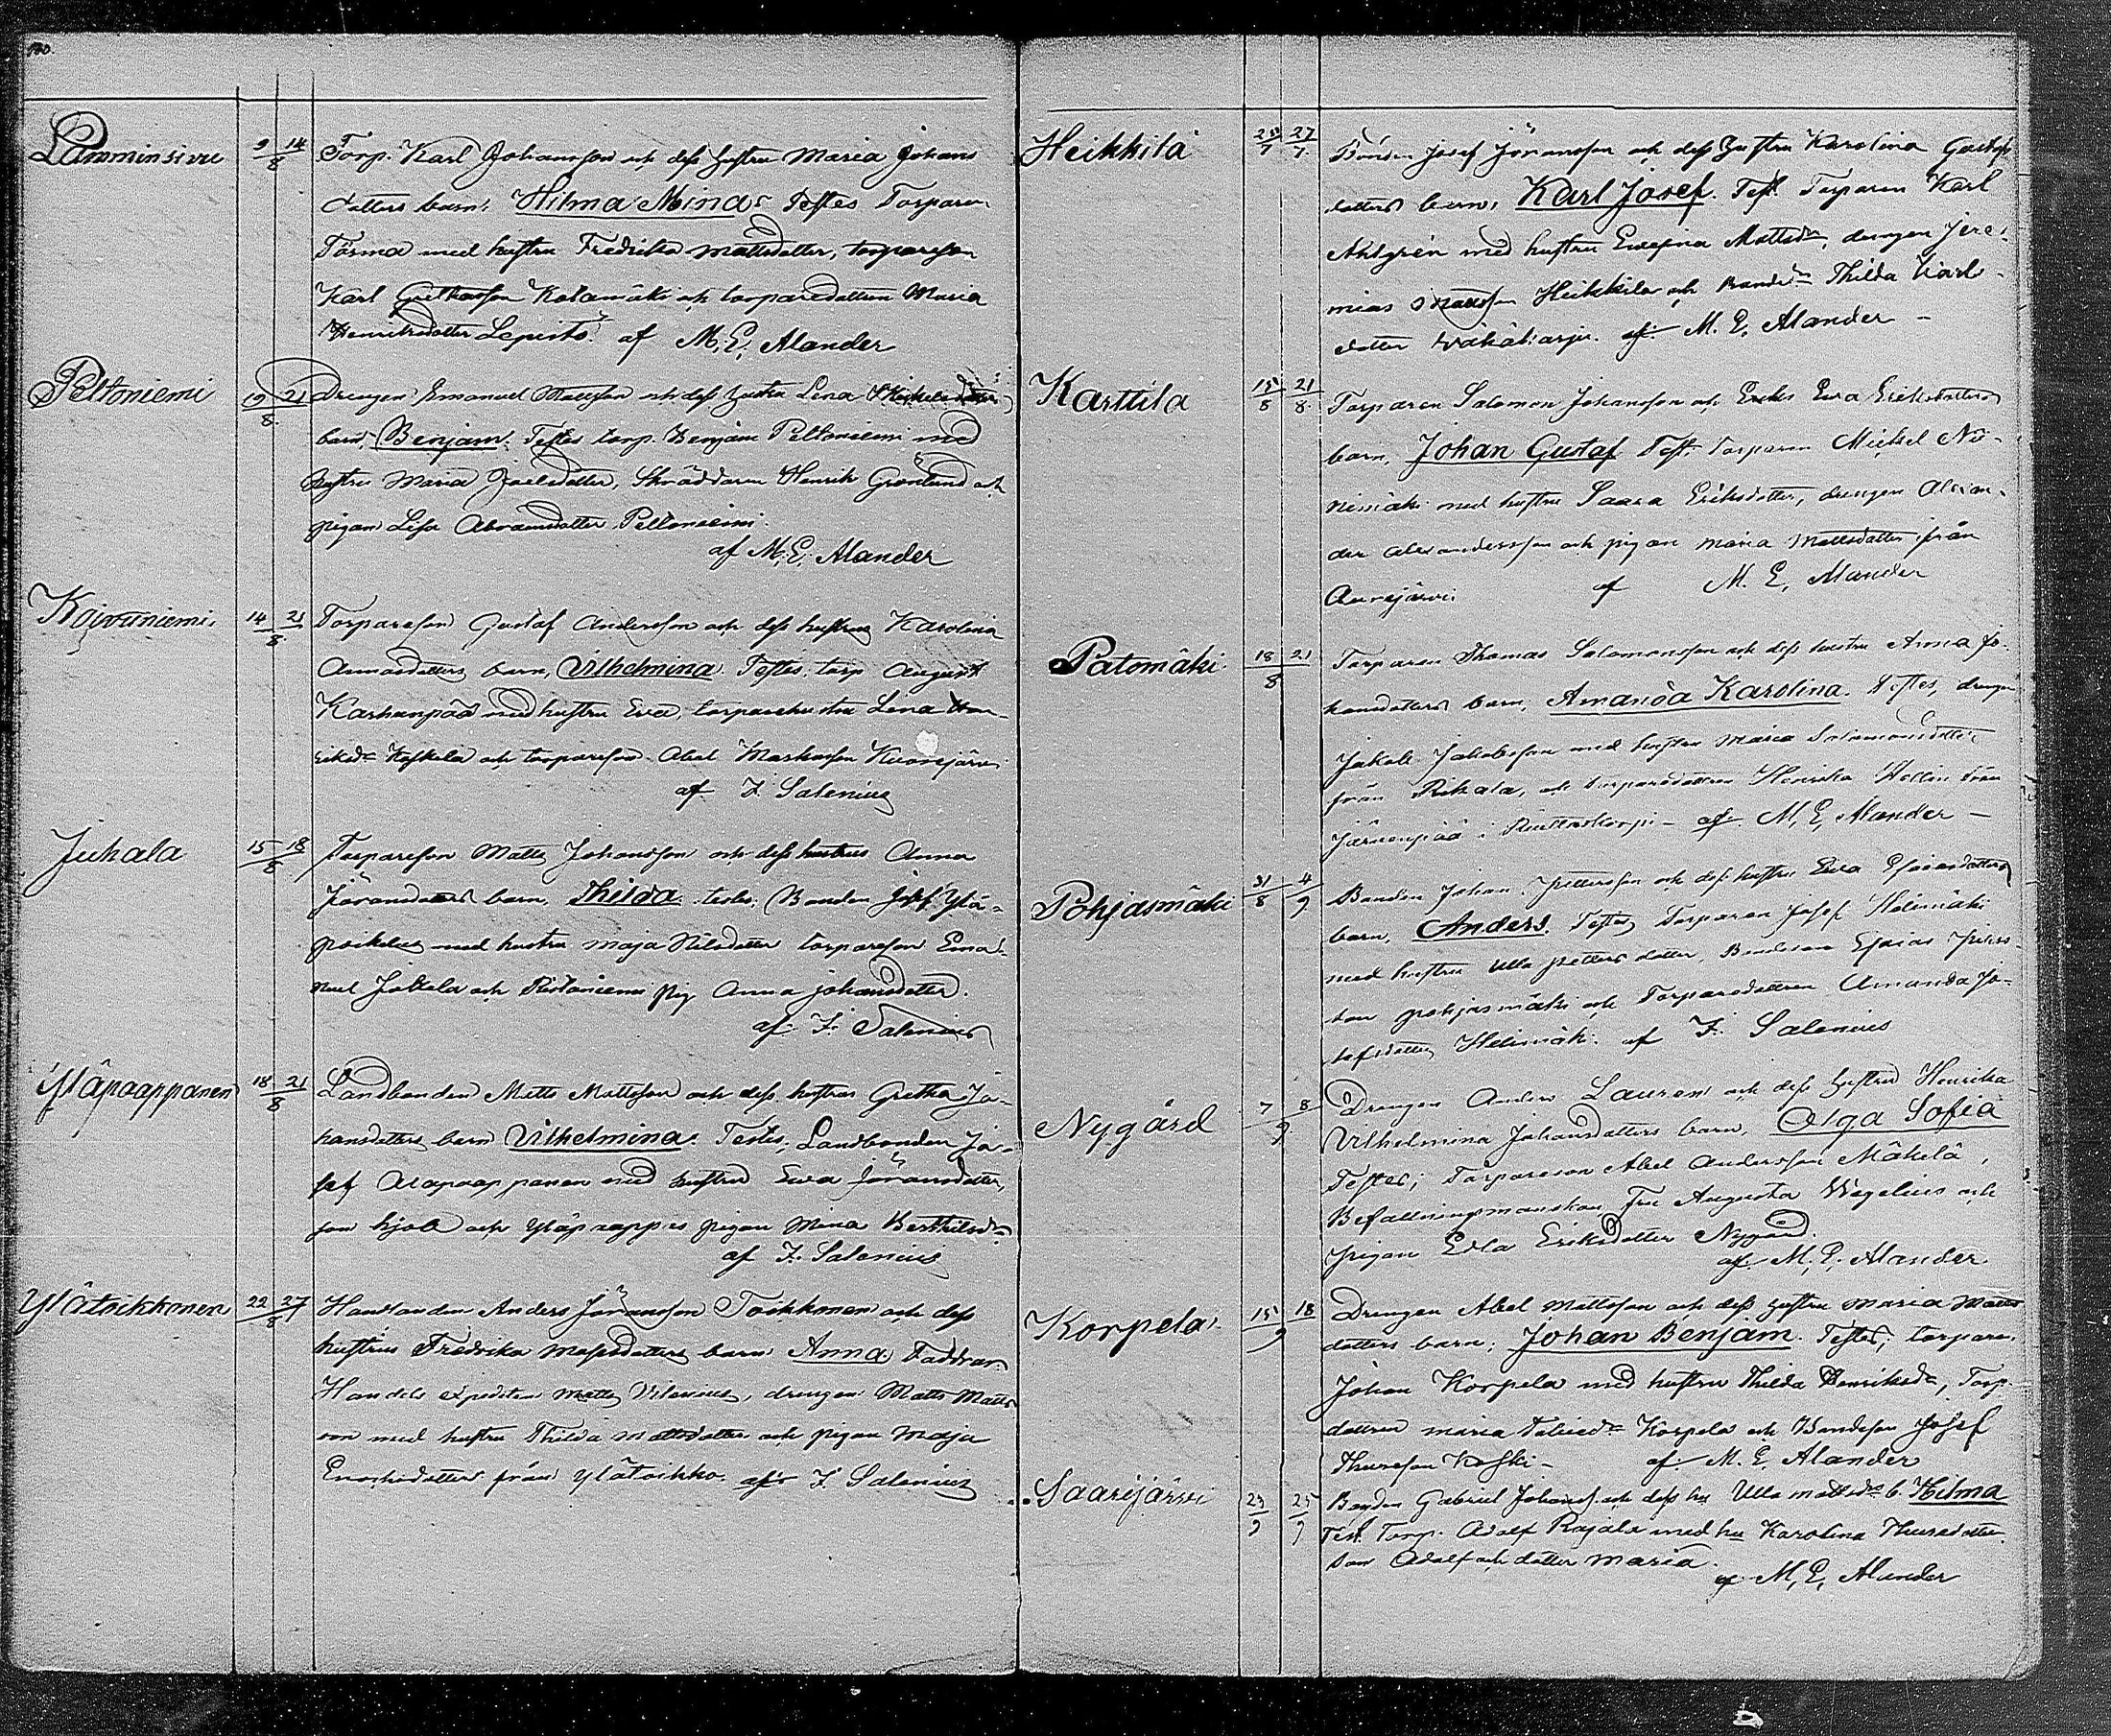 130.
Lamminsivu 9 14/8 Torp. Karl Johansson och dess hustru Maria Johans
dotters barn, Hilma Mina: Testes Torparen
Törmä med hustru Fredrika Mattsdotter, torpareson
Karl Kolamäki och torparedottren Maria
Henriksdotter Lepistö. af M. E. Alander
Peltoniemi 19 21/8 Drengen Emanuel Mattsson och dess hustru Lena
barn, Benjam. Testes torp. Benjam Peltoniemi med
hustru Maria Joelsdotter, Skräddaren Henrik Grönlund och
pigan Lisa Abramsdotter Peltoniemi.
af M. E. Alander
Koivuniemi 14 21/8 Torpareson Gustaf Andersson och dess hustrus Karolina
barn, Vilhelmina. Testes, torp August
Karhanpää med hustru Eva, torparehustru Lena
Koskela och torpareson Abel Markusson Kuorejärvi
af F. Salenius
Juhala 15 18/8 Torpareson Matts Johansson och dess hustrus Anna
Jöransdotters barn, Thilda. testes, Bonden Josef Ylä-
med hustru Maja Nilsdotter torpareson Ema-
nuel Jokela och Ristaniemi pig Anna Johansdotter.
af F. Salenius
Yläpaappanen 18 21/8 Landbonden Matts Mattsson och dess hustrus Gretha Jo-
hansdotters barn Vilhelmina. Testes, Landbonden Jo-
sef Alapaappanen med hustru Eva Jöransdotter,
och pigan Mina Berthilsdr
af F. Salenius
Ylätoikkonen 22 27/8 Anders Jöransson Toikkonen och dess
hustrus Fredrika Mosesdotters barn Anna Faddrar
Handels expediten Matts Vilenius, drengen Matts Matts
son med hustru Thilda Mattsdotter och pigan Maja
Enochsdotter från Ylätoikko. af F. Salenius
Heikkilä 25/7 27/7 Bonden Josef Jöransson och dess hustru Karolina Gustafs
dotters barn, Karl Josef. Test. Torparen Karl
Ahlgrén med hustru Evefina Mattsdr, drengen Jere-
mias Mattsson Heikkilä och Thilda Karl-
dotter Vähäharju. af M. E. Alander –
Karttila 15/8 21/8 Torparen Salomon Johansson och Eva Eriksdotters
barn, Johan Gustaf Test. Torparen Michel Nii-
nimäki med hustru Saara Eriksdotter, drengen Alexan-
der Alexandersson och pigan Maria Mattsdotter från
Aurejärvi. af M. E. Alander
Patomäki 18 21/8 Torparen Thomas Salomonsson och dess hustru Anna Jo-
hansdotters barn, Amanda Karolina. Testes, drengen
Jakob Jakobsson med hustru Maria Salomonsdotter
från Rikala, och torparedottren Henrika Hellin från
Järvenpää i – af M. E. Alander –
Pohjasmäki 31/8 4/9 Bonden Johan Pettersson och dess hustru Eva Esaiasdotters
barn, Anders. Testes Torparen Josef Helimäki
med hustru Ulla Pettersdotter, Bondeson Esaias Johans-
son Pohjasmäki och Torparedottren Amanda Jo-
sefsdotter Helimäki. af F. Salenius
Nygård 7 8/9 Drengen Anders Lauren och dess hustru Henrika
Vilhelmina Johansdotters barn, Olga Sofia
Testes; Torpareson Abel Andersson Mäkelä,
Befallningsmanskan Fru Augusta Wegelius och
pigan Edla Eriksdotter Nygård.
af M. E. Alander.
Korpela 15 18/9 Drengen Abel Mattsson och dess hustru Maria Matts
dotters barn; Johan Benjam. Testes; torparen
Johan Korpela med hustru Thilda Henriksdr, Torp.
dottren Maria Korpela och Bondeson Josef
Thuresson Koski – af M. E. Alander
Saarejärvi 23/9 25/9 Bonden Gabriel Johanss. och dess hu Ulla Mattsdr b. Hilma
Test. Torp. Adolf Rajala med hu Karolina Thuredotter
son Adolf och dotter Maria.
af M. E. Alander